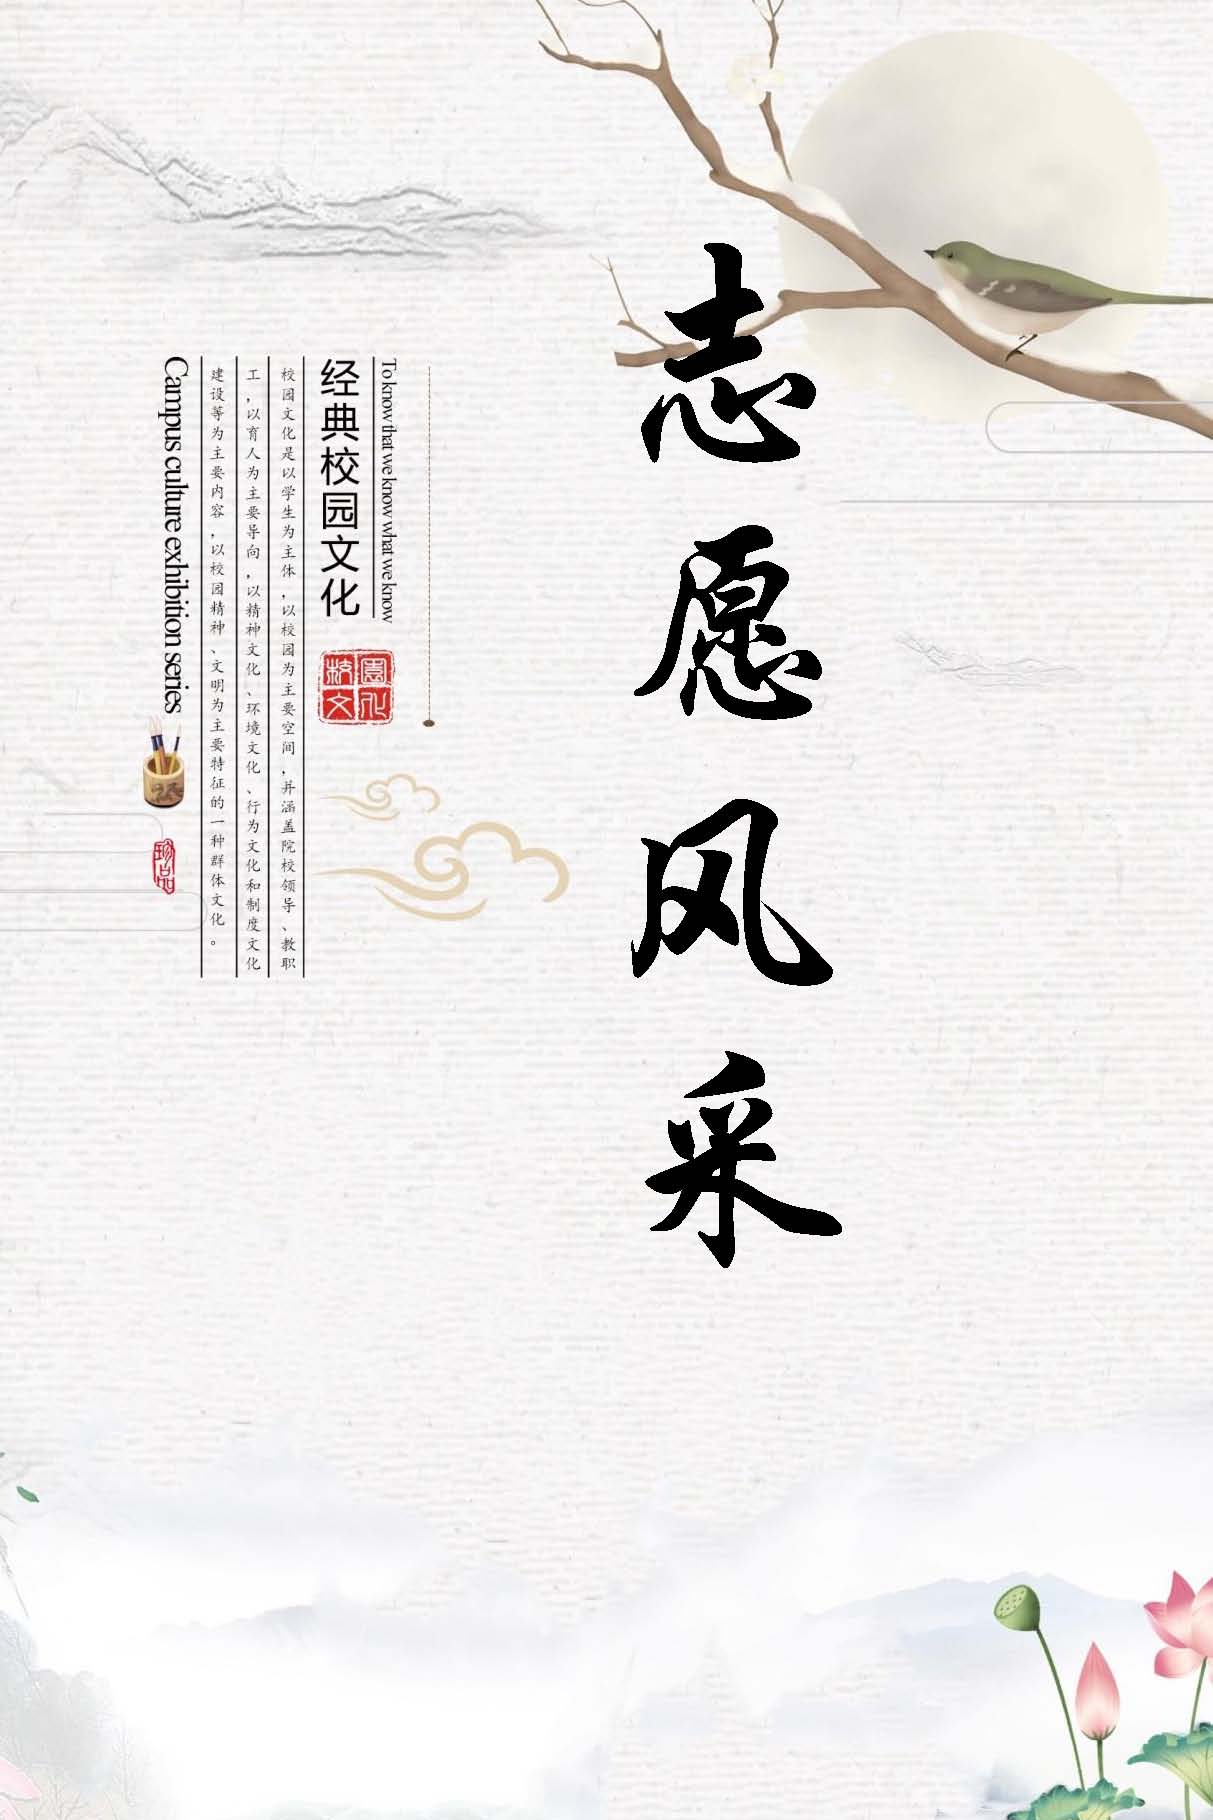 志愿风采
To know that we know what we know
经典校园文化
校园文化
校园文化是以学生为主体，以校园为主要空间，并涵盖院校领导、教职
工，以育人为主要导向，以精神文化、环境文化、行为文化和制度文化
建设等为主要内容，以校园精神、文明为主要特征的一种群体文化。
Campus culture exhibition series
珍品